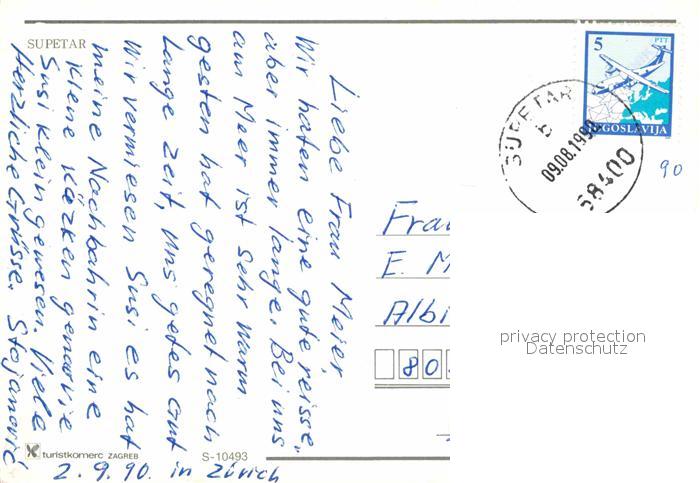 SUPETAR
Liebe Frau Meier
Wir haten eine gute reisse.
aber immer lange. Bei uns
am Meer ist sehr warm
gesten hat geregnet nach
Lange Zeit, uns getes Gut
Wir vermiesen Susi es hat
meine Nachbahrin eine
klene kazken
Susi klein gewesen. Viele
Herzliche Grüsse. Stojanović
turistkomerc ZAGREB
S-10493
2.9.90. in Zürich
5
PTT
JUGOSLAVIJA
SUPETAR
b
09.08.1990
58400
90
Frau
E. M
Albi
80
privacy protection
Datenschutz